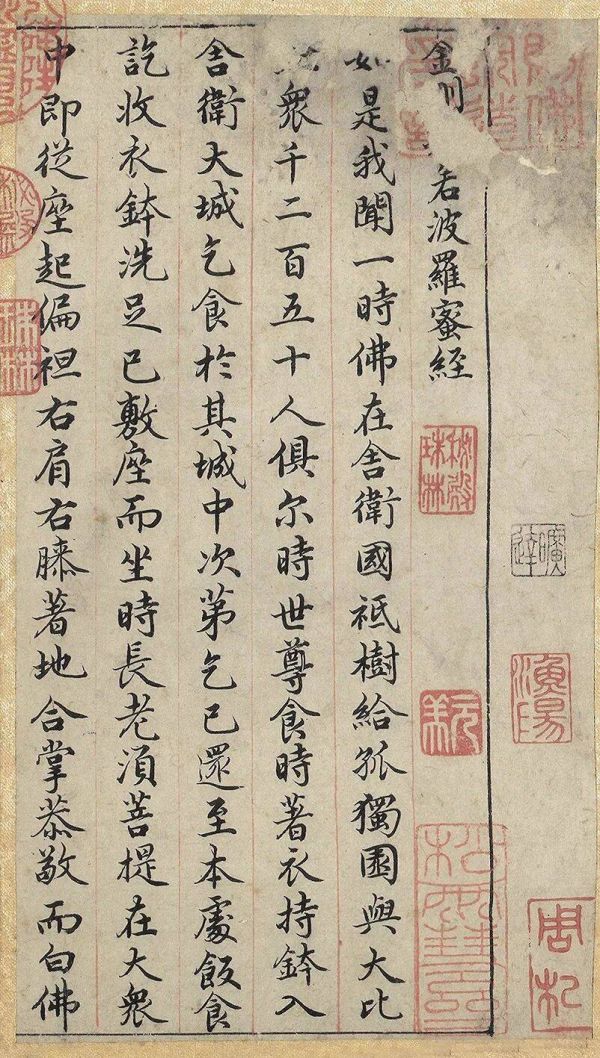 曠達
漁陽
金若波羅蜜經
如是我聞一時佛在舍衛國祇樹給孤獨園與大比
衆千二百五十人俱尔時世尊食時著衣持鉢入
舍衛大城乞食於其城中次第乞已還至本處飯食
訖收衣鉢洗足已敷座而坐時長老須菩提在大衆
中即從座起偏袒右肩右膝著地合掌恭敬而白佛